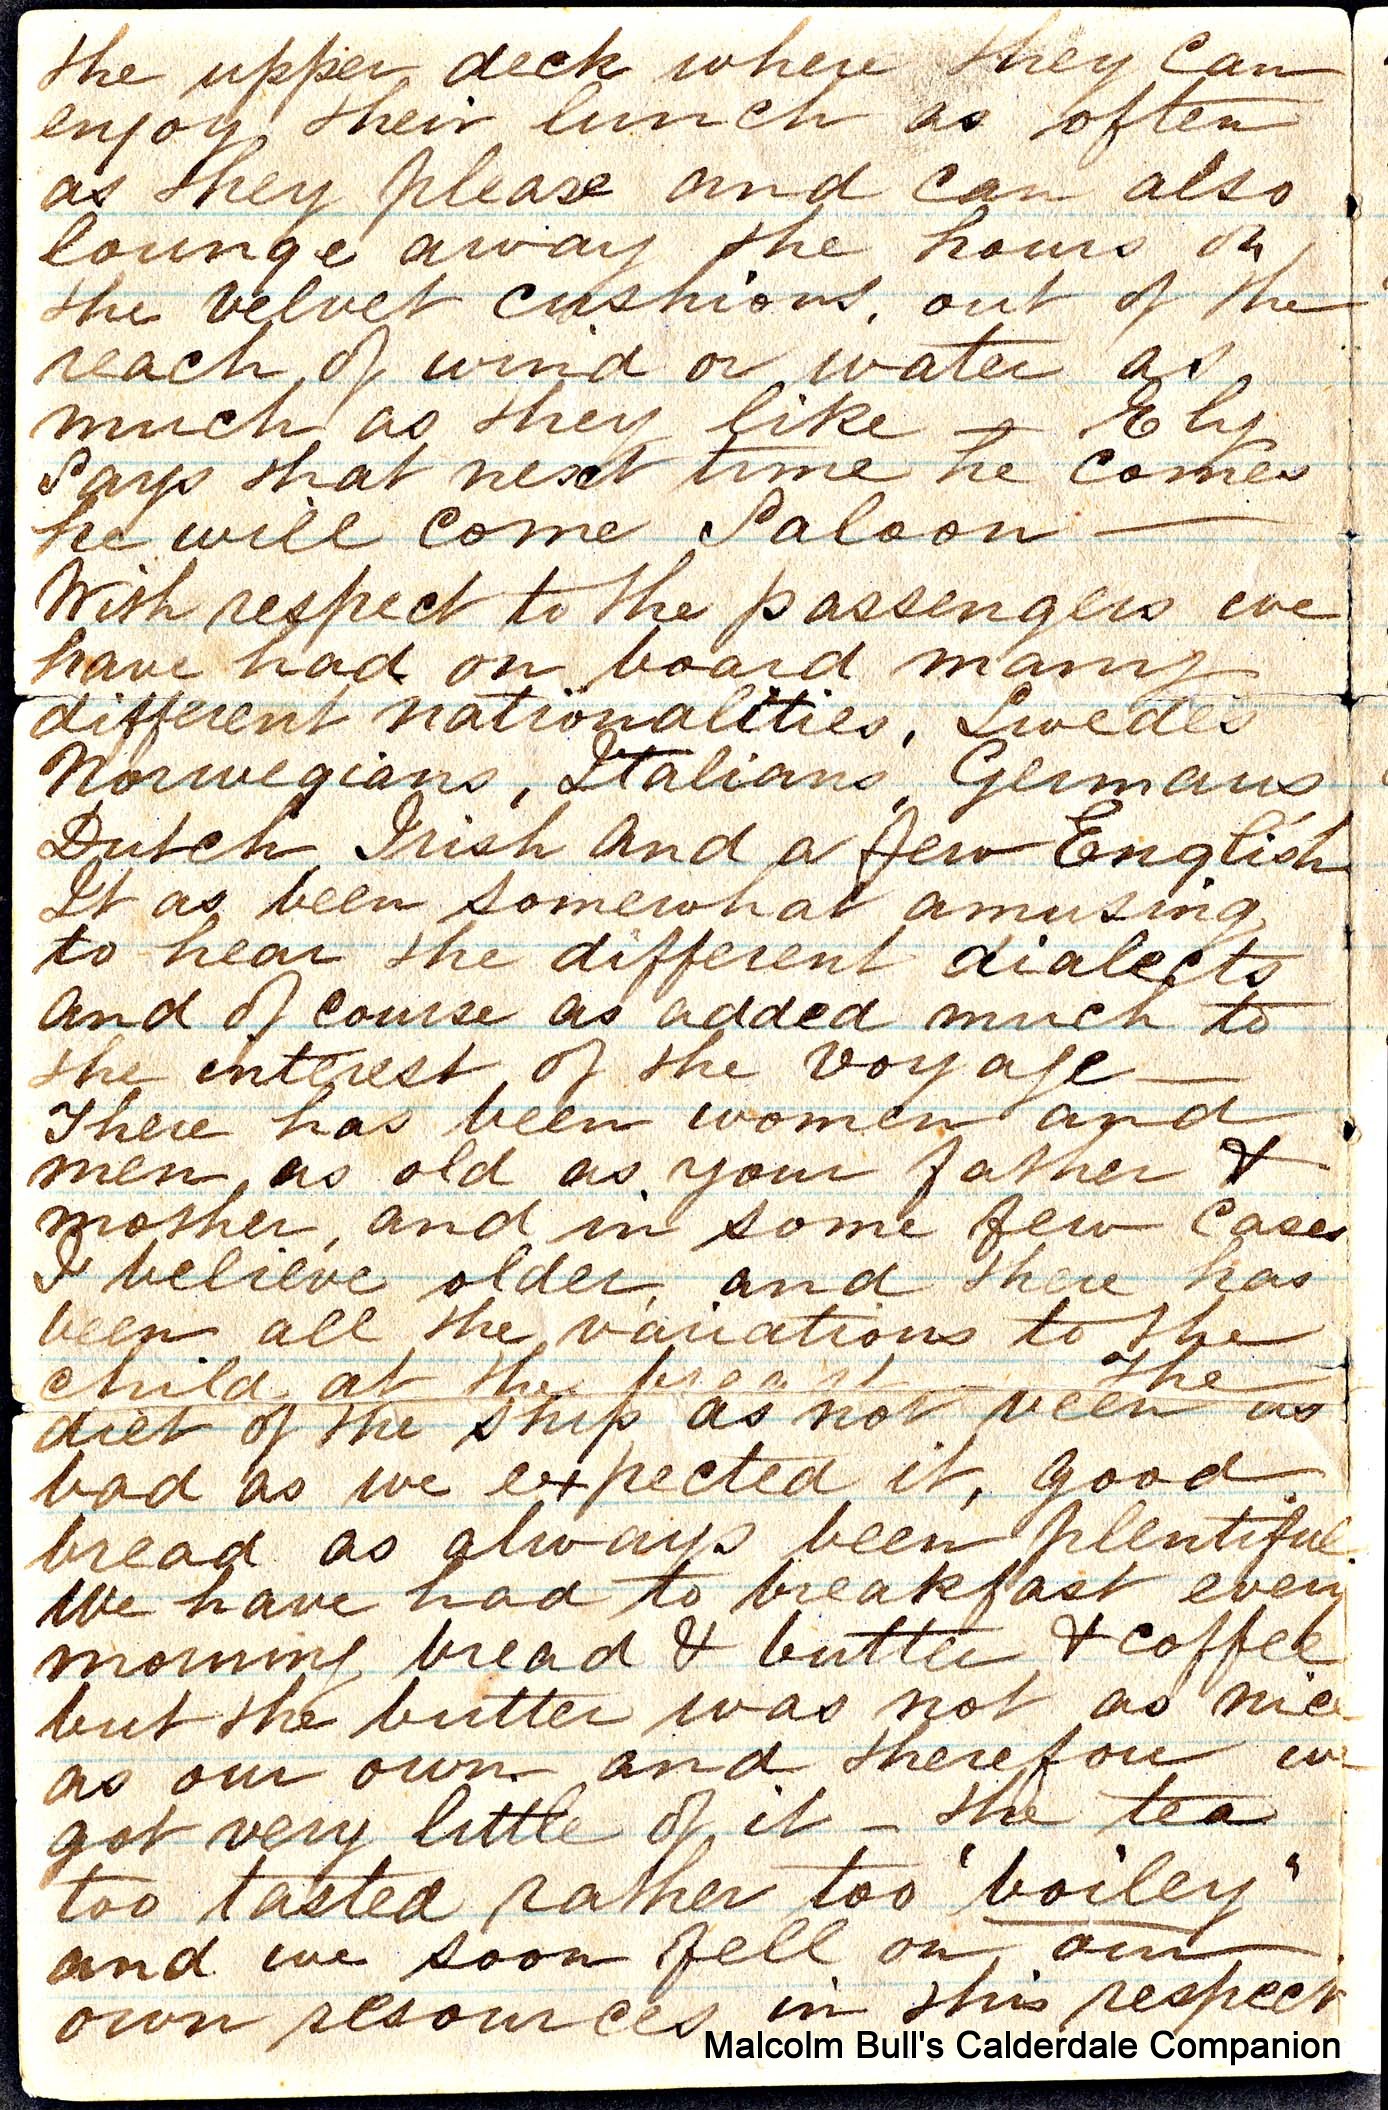 the upper deck where they can
enjoy their lunch as often
as they please and can also
lounge away the hours on
the velvet cushions, out of the
reach of wind or water as
much as they like — Ely
says that next time he comes
he will come Saloon —
With respect to the passengers we
have had on board many
different nationalities, Swedes
Norwegians, Italians, Germans
Dutch, Irish and a few English
It as been somewhat amusing
to hear the different dialects
and of course as added much to
the interest of the voyage —
There has been women and
men as old as your father &
mother, and in some few cases
I believe older, and there has
been all the variations to the
child at the breast — The
diet of the ship as not been as
bad as we expected it, good
bread as always been plentiful.
We have had to breakfast every
morning bread & butter & coffee
but the butter was not as nice
as our own and therefore we
got very little of it — the tea
too tasted rather too "boiley"
and we soon fell on our
own resources in this respect
Malcolm Bull's Calderdale Companion